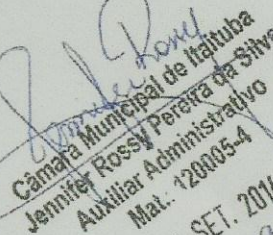 Câmara Municipal de Itaituba
Jennifer Rossy Pereira da Silva
Auxiliar Administrativo
Mat.: 120005-4
SET. 2016